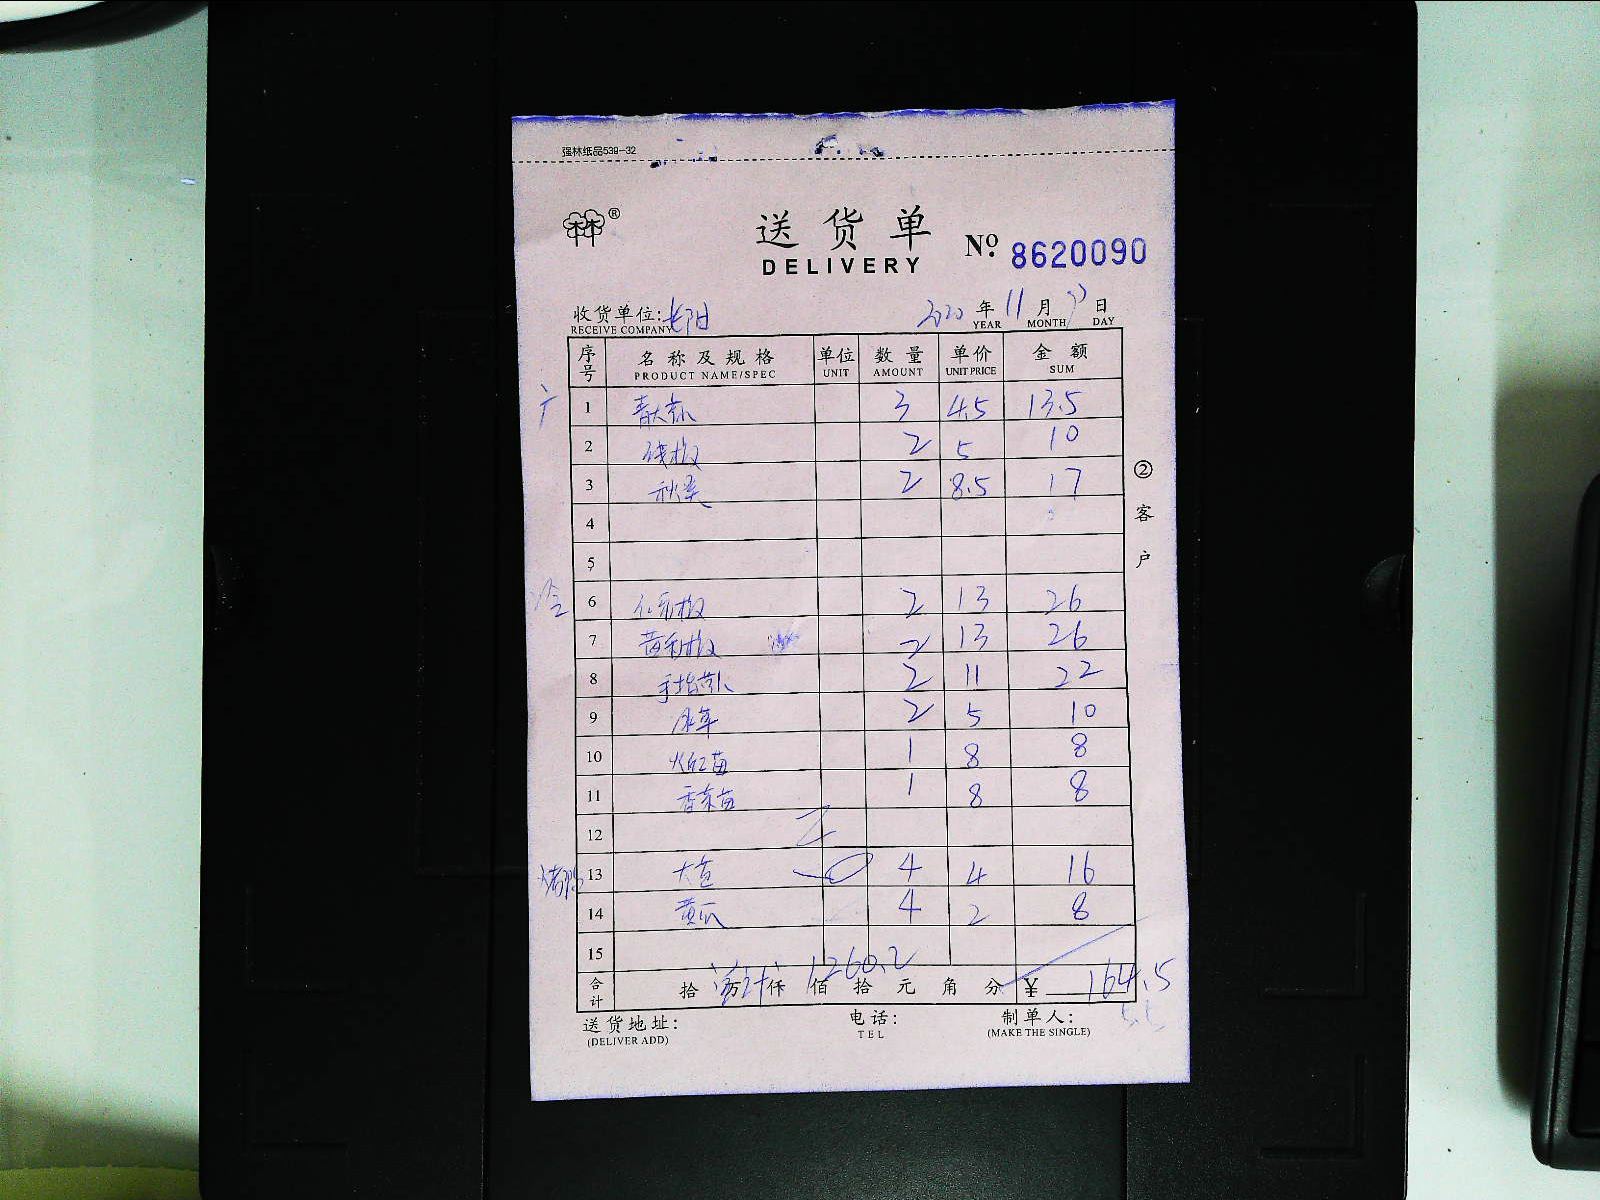 强林纸品539-32
®
送货单
DELIVERY
No. 8620090
收货单位: 长阳 2020年11月 日
RECEIVE COMPANY YEAR MONTH DAY
序号 名称及规格 单位 数量 单价 金额
PRODUCT NAME/SPEC UNIT AMOUNT UNIT PRICE SUM
1 青大 3 4.5 13.5
2 椒 2 5 10
3 秋 2 8.5 17
4
5
冷 6 椒 2 13 26
7 黄彩椒 2 13 26
8 手指 2 11 22
9 2 5 10
10 苗 1 8 8
11 香菜苗 1 8 8
12
13 大 4 4 16
14 黄瓜 4 2 8
15
1260.2
合计 拾 万 仟 佰 拾 元 角 分 ¥ 164.5
送货地址: 电话: 制单人:
(DELIVER ADD) TEL (MAKE THE SINGLE)
② 客户